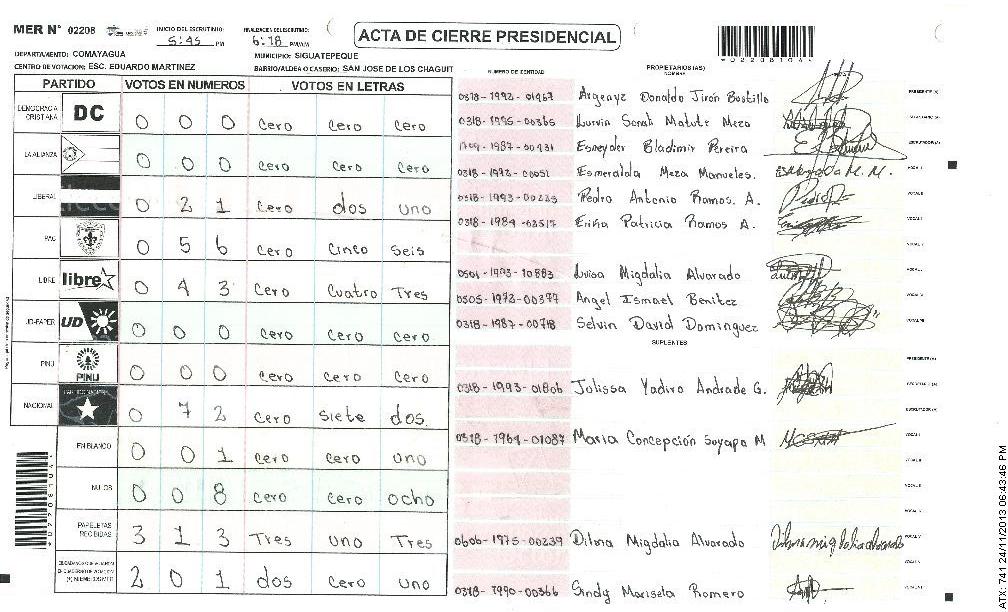 MER N° 02208 INICIO DEL ESCRUTINIO: 5:45 PM FINALIZACION DEL ESCRUTINIO: 6:18 PM/AM ACTA DE CIERRE PRESIDENCIAL *02208104*
DEPARTAMENTO: COMAYAGUA MUNICIPIO: SIGUATEPEQUE
CENTRO DE VOTACION: ESC. EDUARDO MARTINEZ BARRIO/ALDEA O CASERIO: SAN JOSE DE LOS CHAGUIT
PARTIDO VOTOS EN NUMEROS VOTOS EN LETRAS
DEMOCRACIA CRISTIANA DC 0 0 0 cero cero cero
LA ALIANZA 0 0 0 cero cero cero
LIBERAL 0 2 1 cero dos uno
PAC 0 5 6 cero cinco seis
LIBRE libre 0 4 3 cero cuatro Tres
UD-FAPER UD 0 0 0 cero cero cero
PINU PINU 0 0 0 cero cero cero
NACIONAL 0 7 2 cero siete dos
EN BLANCO 0 0 1 cero cero uno
NULOS 0 0 8 cero cero ocho
PAPELETAS RECIBIDAS 3 1 3 Tres uno Tres
2 0 1 dos cero uno
NUMERO DE IDENTIDAD PROPIETARIOS(AS)
NOMBRE
0318-1992-01967 Donaldo Jirón Bostillo
0318-1995-00365 Sarahi Matute Meza
1987-00931 Esneyder Bladimir Pereira
0318-1992-00051 Esmeralda Meza Manueles. Esmeralda M. M.
0318-1993-00239 Pedro Antonio Ramos. A.
0318-1984-03517 Patricia Ramos A.
0501-1993-10883 Luisa Migdalia Alvarado
0505-1972-00377 Angel Ismael Benitez
0318-1987-00718 Selvin David Dominguez
SUPLENTES
0318-1993-01806 Julissa Yadira Andrade G.
0318-1964-01087 Maria Concepción Suyapa M
0606-1975-00239 Dilma Migdalia Alvarado
0318-1990-00366 Sindy Marisela Romero
ATX: 741 24/11/2013 06:43:46 PM